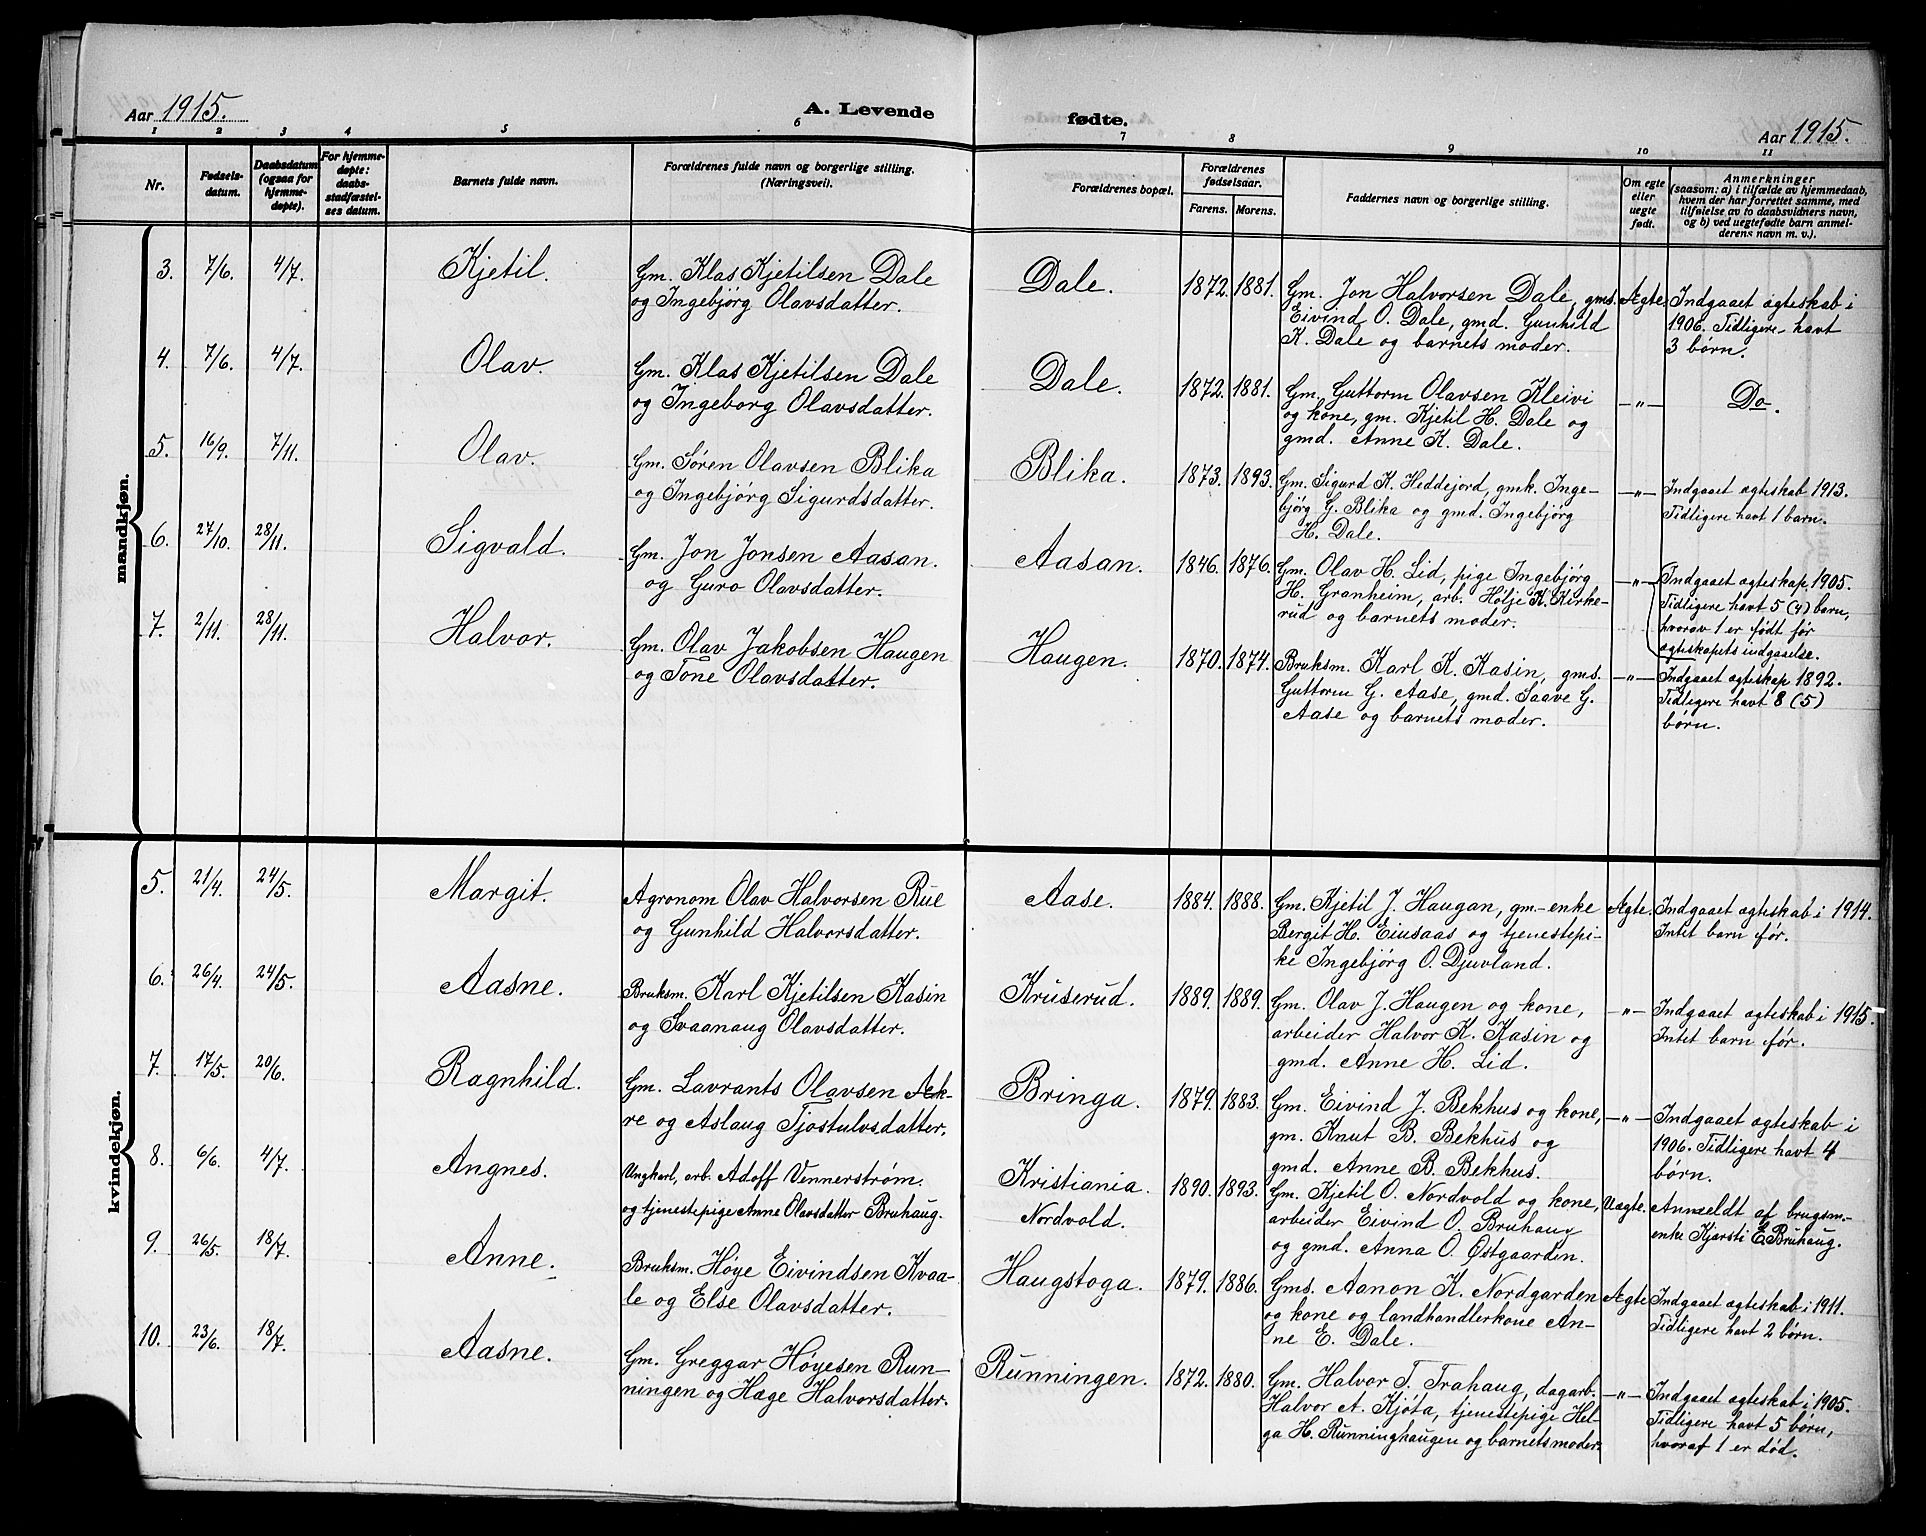 Aar 1915.
A. Levende
fødte.
Aar 1915.
1 2 3 4 5 6 7 8 9 10 11
Nr.
Fødsels-
datum.
Daabsdatum
(ogsaa for
hjemme-
døpte).
For hjemme-
døpte:
daabs-
stadfæstel-
ses datum.
Barnets fulde navn.
Forældrenes fulde navn og borgerlige stilling.
(Næringsvei).
Forældrenes bopæl.
Forældrenes
fødselsaar.
Farens. Morens.
Faddernes navn og borgerlige stilling.
Om egte
eller
uegte
født.
Anmerkninger
(saasom: a) i tilfælde av hjemmedaab,
hvem der har forrettet samme, med
tilføielse av to daabsvidners navn,
og b) ved uegtefødte barn anmel-
derens navn m. v.).
mandkjøn.
3. 7/6. 4/7. Kjetil.
Gm. Klas Kjetilsen Dale
og Ingebjørg Olavsdatter.
Dale. 1872. 1881.
Gm. Jon Halvorsen Dale, gms.
Eivind O. Dale, gmd. Gunhild
K. Dale og barnets moder.
Ægte.
Indgaaet ægteskab i
1906. Tidligere havt
3 børn.
4. 7/6. 4/7. Olav.
Gm. Klas Kjetilsen Dale
og Ingeborg Olavsdatter.
Dale. 1872. 1881.
Gm. Guttorm Olavsen Kleivi
og kone, gm. Kjetil H. Dale og
gmd. Anne K. Dale.
—"— Do.
5. 16/9. 7/11. Olav.
Gm. Søren Olavsen Blika
og Ingebjørg Sigurdsdatter.
Blika. 1873. 1893.
Gm. Sigurd K. Heddejord, gmk. Inge-
bjørg G. Blika og gmd. Ingebjørg
H. Dale.
—"—
Indgaaet ægteskab 1913.
Tidligere havt 1 barn.
6. 27/10. 28/11. Sigvald.
Gm. Jon Jonsen Aasan.
og Guro Olavsdatter.
Aasan. 1846. 1876.
Gm. Olav H. Lid, pige Ingebjørg
H. Granheim, arb. Hølje K. Kirke-
rud og barnets moder.
—"—
Indgaaet ægteskap 1905.
Tidligere havt 5 (4) barn,
hvorav 1 er født før
ægteskapets indgaaelse.
7. 2/11. 28/11. Halvor.
Gm. Olav Jakobsen Haugen
og Tone Olavsdatter.
Haugen. 1870. 1874.
Bruksm. Karl K. Kasin, gms.
Guttorm G. Aase, gmd. Saave G.
Aase og barnets moder.
—"—
Indgaaet ægteskap 1892.
Tidligere havt 8 (5)
børn.
kvindekjøn.
5. 21/4. 24/5. Margit.
Agronom Olav Halvorsen Rue
og Gunhild Halvorsdatter.
Aase. 1884. 1888.
Gm. Kjetil J. Haugan, gm-enke
Bergit H. Einsaas og tjenestepi-
ke Ingebjørg O. Djuvland.
Ægte.
Indgaaet ægteskab i 1914.
Intet barn før.
6. 26/4. 24/5. Aasne.
Bruksm. Karl Kjetilsen Kasin
og Svaanaug Olavsdatter.
Kruserud. 1889. 1889.
Gm. Olav J. Haugen og kone,
arbeider Halvor K. Kasin og
gmd. Anne H. Lid.
—"—
Indgaaet ægteskab i 1915.
Intet barn før.
7. 17/5. 20/6. Ragnhild.
Gm. Lavrants Olavsen Aek-
re og Aslaug Tjostulvsdatter.
Bringa. 1879. 1883.
Gm. Eivind J. Bekhus og kone,
gm. Knut B. Bekhus og
gmd. Anne B. Bekhus.
—"—
Indgaaet ægteskab i
1906. Tidligere havt 4
børn.
8. 6/6. 4/7. Angnes.
Ungkarl, arb. Adoff Vennerstrøm.
og tjenestepige Anne Olavsdatter Bruhaug.
Kristiania.
Nordvold.
1890. 1893.
Gm. Kjetil O. Nordvold og kone,
arbeider Eivind O. Bruhaug
og gmd. Anna O. Østgaarden.
Uægte.
Anmeldt af brugsm-
enke Kjersti E. Bruhaug.
9. 26/5. 18/7. Anne.
Bruksm. Høye Eivindsen Kvaa-
le og Else Olavsdatter.
Haugstoga. 1879. 1886.
Gms. Aanon K. Nordgarden
og kone og landhandlerkone An-
ne E. Dale.
Ægte
Indgaaet ægteskab i 1911.
Tidligere havt 2 børn.
10. 23/6. 18/7. Aasne.
Gm. Greggar Høyesen Run-
ningen og Hæge Halvorsdatter.
Runningen. 1872. 1880.
Gm. Halvor T. Trahaug, dagarb.
Halvor A. Kjøta, tjenestepige Hel-
ga H. Runninghaugen og barnets moder.
—"—
Indgaaet ægteskab i 1905.
Tidligere havt 5 børn,
hvoraf 1 er død.